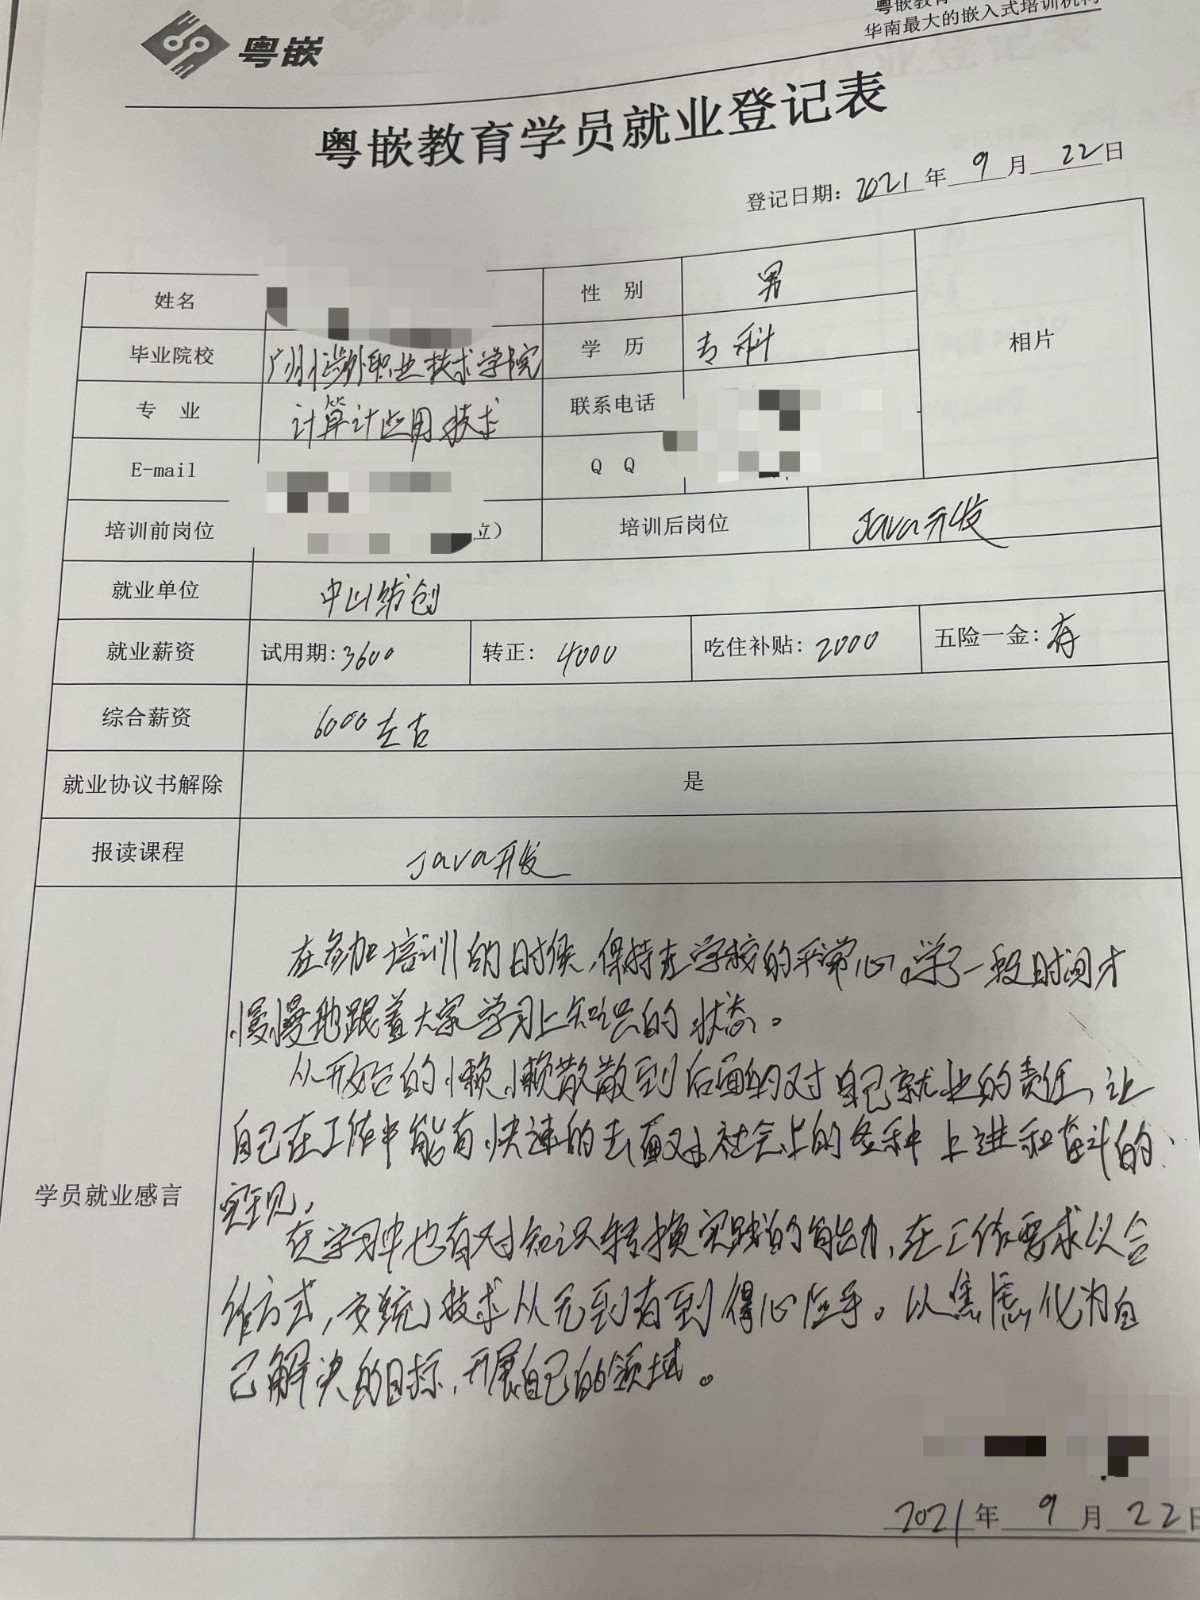 粤嵌
粤嵌教育
华南最大的嵌入式培训机构
粤嵌教育学员就业登记表
登记日期: 2021 年 9 月 22 日
姓名 性 别 男 相片
毕业院校 广州涉外职业技术学院 学 历 专科
专 业 计算计应用技术 联系电话
E-mail Q Q
培训前岗位 立) 培训后岗位 Java开发
就业单位 中山纺创
就业薪资 试用期: 3600 转正: 4000 吃住补贴: 2000 五险一金: 有
综合薪资 6000左右
就业协议书解除 是
报读课程 Java开发
学员就业感言
在参加培训的时候,保持在学校的平常心。学了一段时间才
慢慢地跟着大家学习上知识的状态。
从开始的懒懒散散到后面的对自己就业的责任,让
自己在工作中能有快速的去面对社会上的各种上进和奋斗的
实现。
在学习中也有对知识转换实践的能力,在工作要求以合
作方式,技术从无到有到得心应手。以焦虑,化为自
己解决的目标,开展自己的领域。
2021 年 9 月 22 日